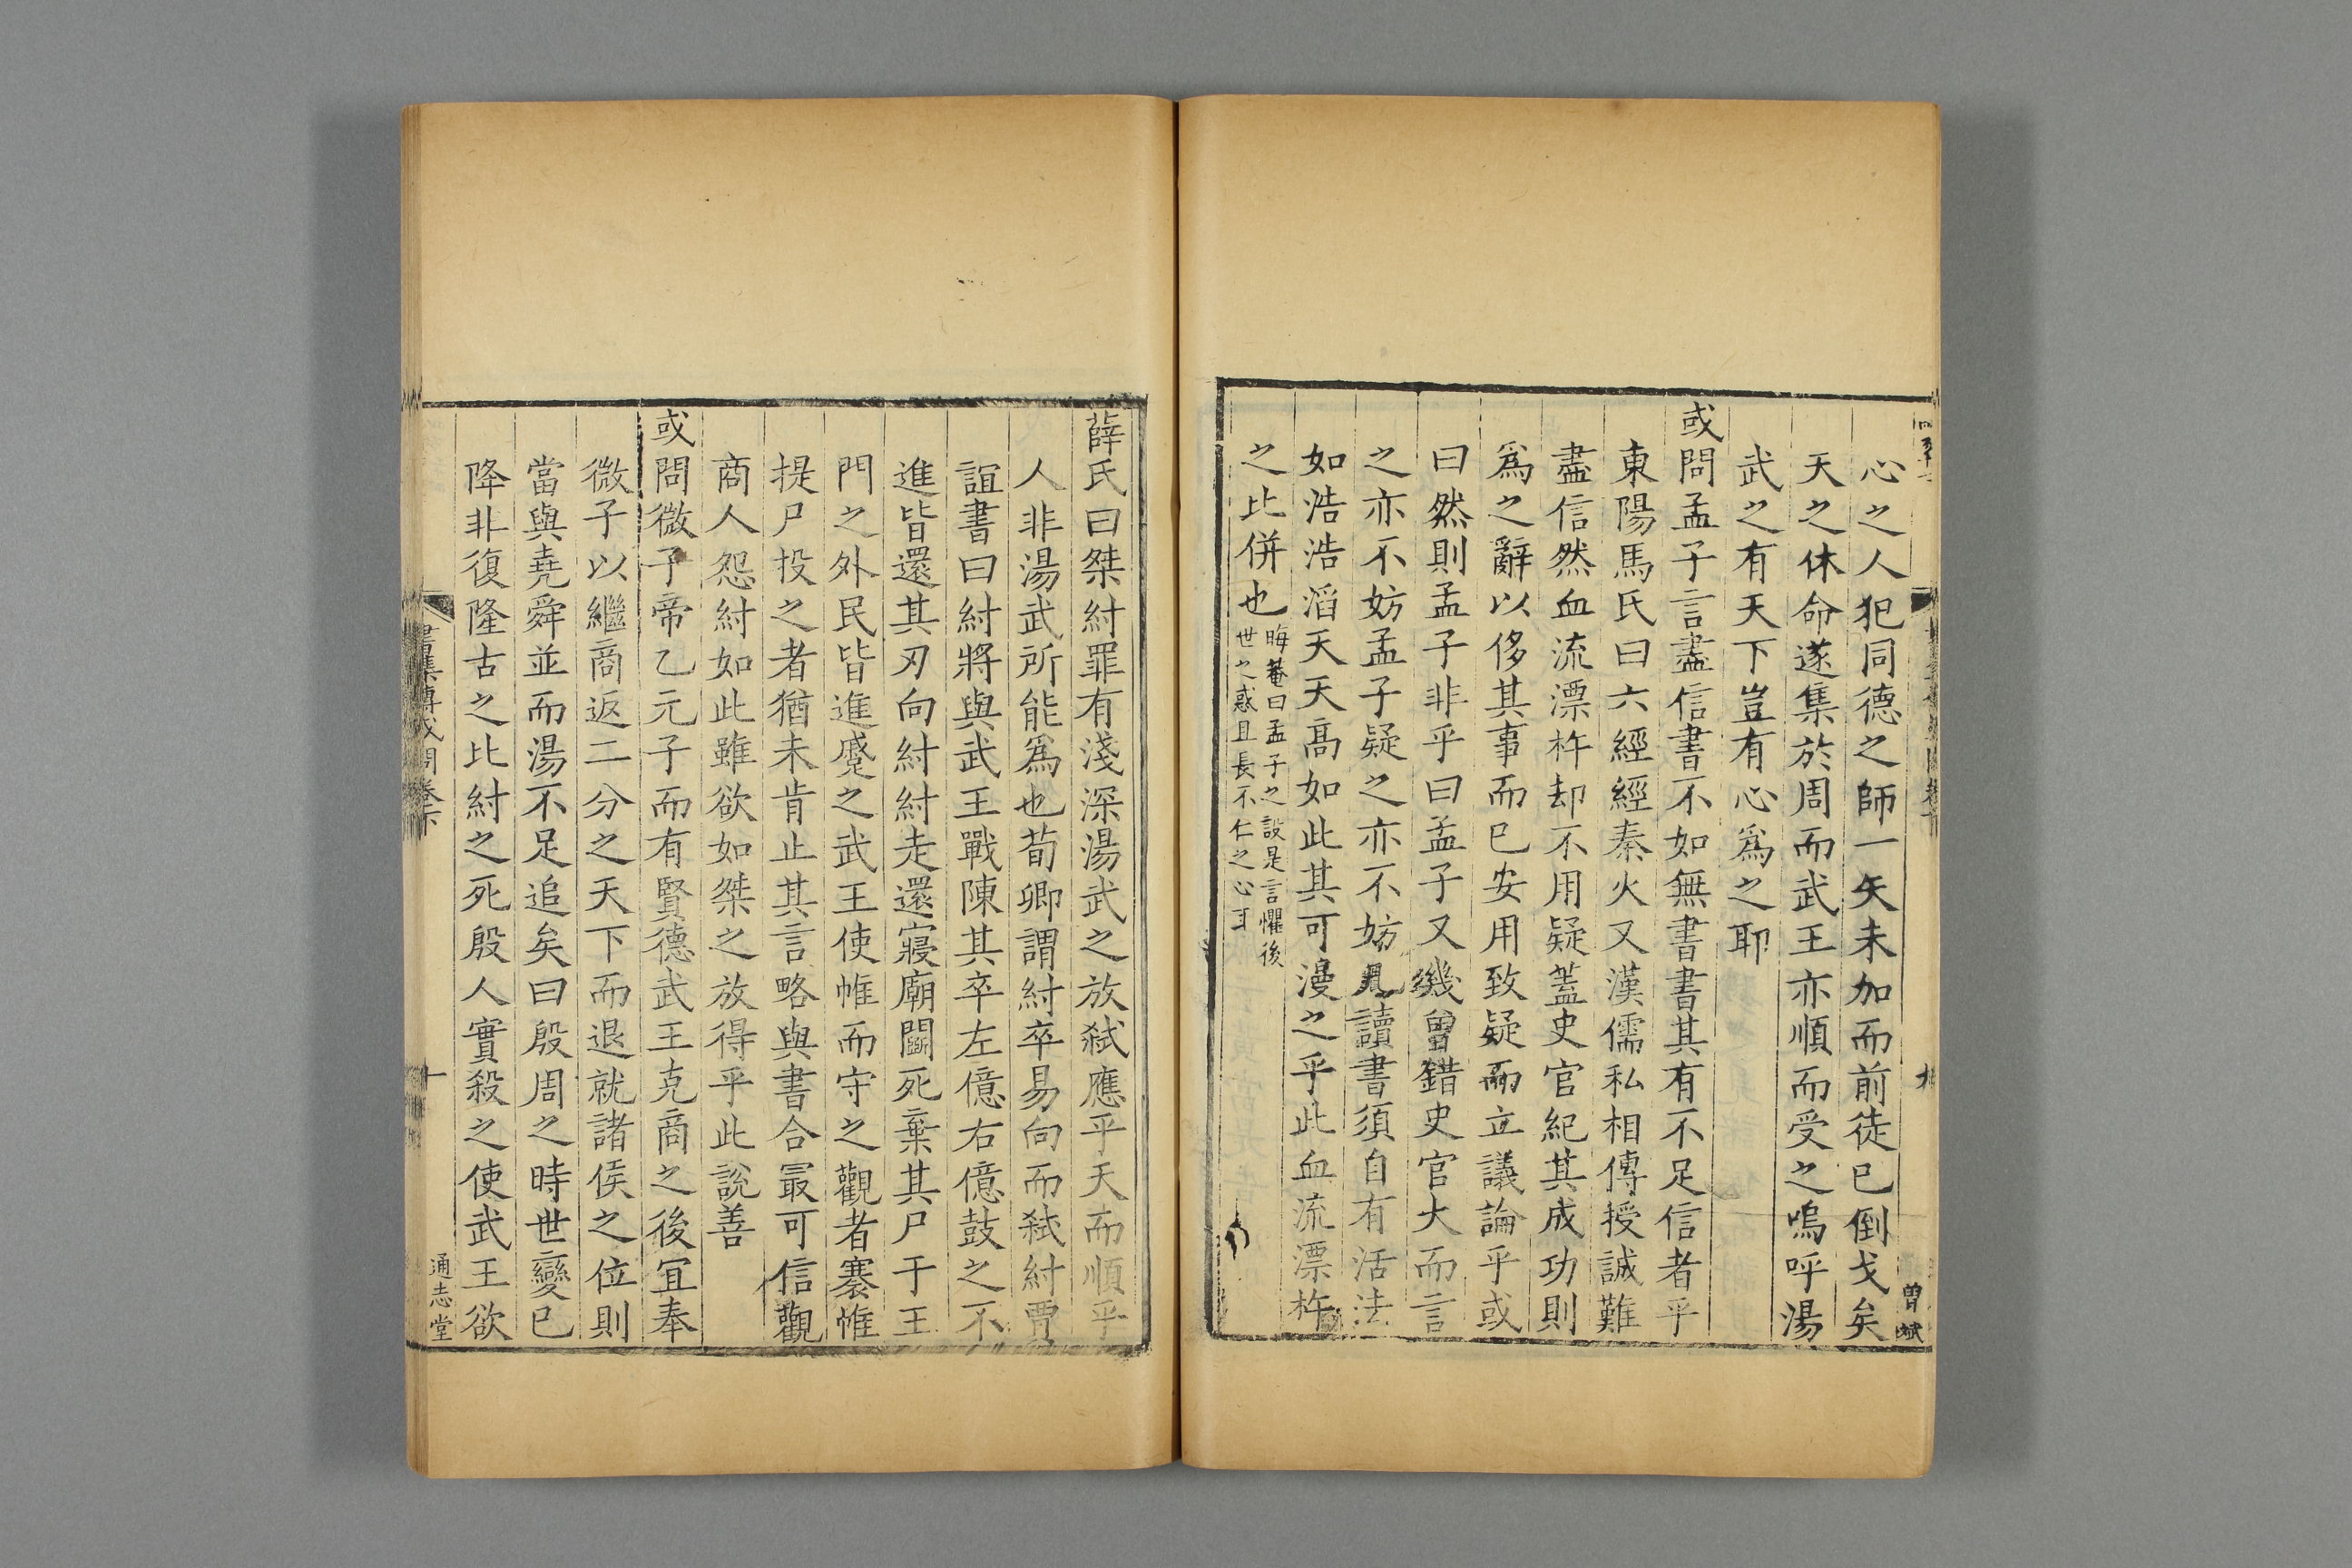 心之人犯同德之師一矢未加而前徒已倒戈矣
天之休命遂集於周而武王亦順而受之嗚呼湯
武之有天下豈有心爲之耶
或問孟子言盡信書不如無書書其有不足信者乎
東陽馬氏曰六經經秦火又漢儒私相傳授誠難
盡信然血流漂杵却不用疑蓋史官紀其成功則
爲之辭以侈其事而已安用致疑而立議論乎或
曰然則孟子非乎曰孟子又幾曾錯史官大而言
之亦不妨孟子疑之亦不妨凡讀書須自有活法
如浩浩滔天天高如此其可漫之乎此血流漂杵
之比併也晦菴曰孟子之設是言懼後世之惑且長不仁之心耳
曾斌
薛氏曰桀紂罪有淺深湯武之放弒應乎天而順乎
人非湯武所能爲也荀卿謂紂卒易向而弒紂賈
誼書曰紂將與武王戰陳其卒左億右億鼓之不
進皆還其刃向紂紂走還寢廟鬭死棄其尸于王
門之外民皆進蹙之武王使帷而守之觀者褰帷
提尸投之者猶未肯止其言略與書合冣可信觀
商人怨紂如此雖欲如桀之放得乎此說善
或問微子帝乙元子而有賢德武王克商之後宜奉
微子以繼商返二分之天下而退就諸侯之位則
當與堯舜並而湯不足追矣曰殷周之時世變已
降非復隆古之比紂之死殷人實殺之使武王欲
書集傳或問卷下
十
通志堂